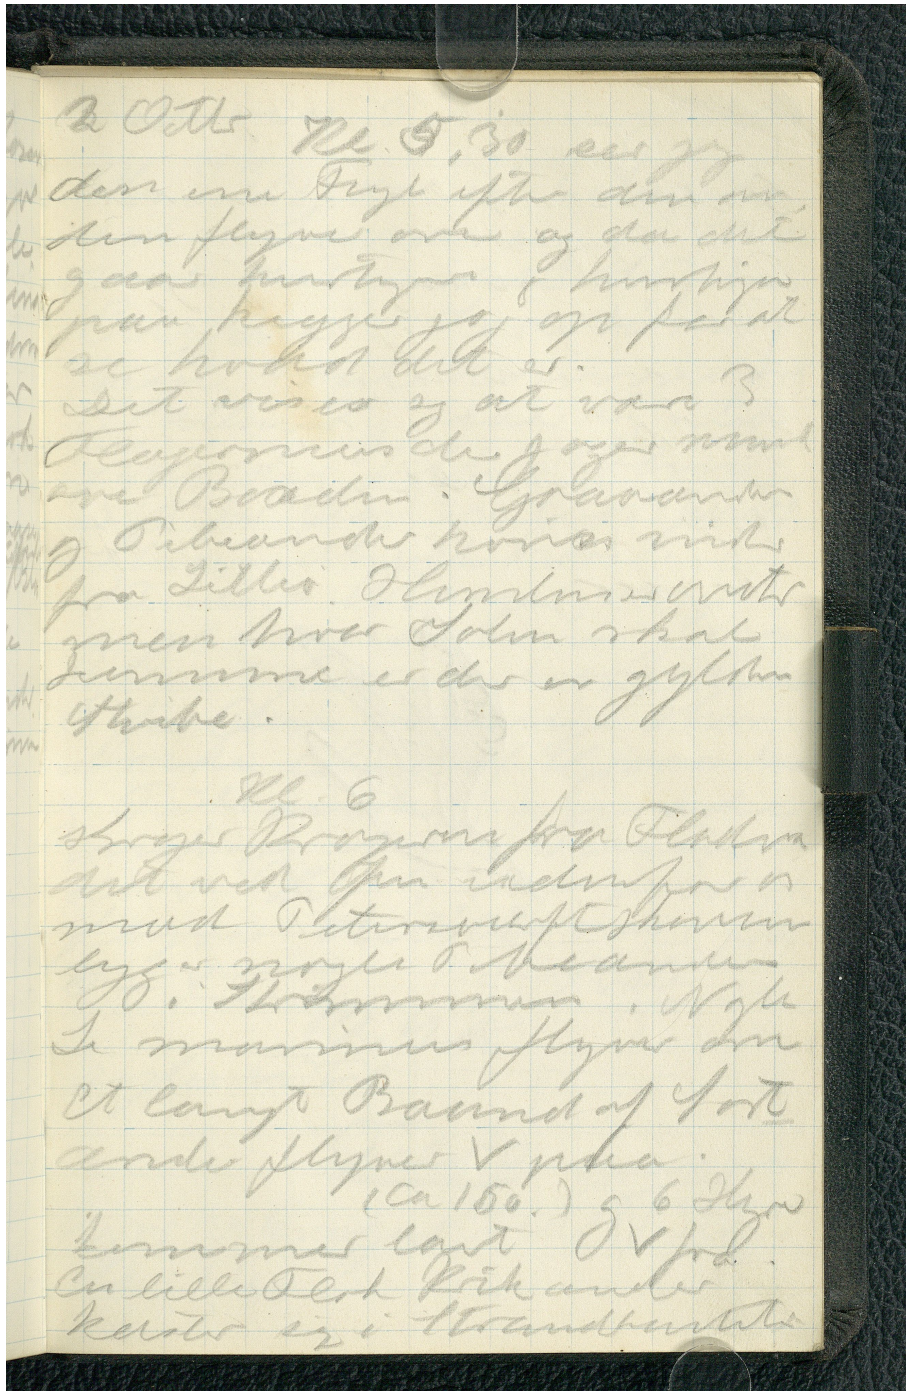 2 Oktbr.
Kl. 5,30 ser jeg
den ene Fugl efter den an-
den flyve over og da det
gaar hurtigere & hurtigere
paa kigger jeg op for at
se hvad det er.
Det viser sig at være 3
Flagermus de jager rundt
over Baaden. Graaænder
og Pibeænder høres inde
fra Lilleø. Himlen er
men hvor Solen skal
komme er der en gylden
Stribe.
Kl. 6
Kragerne fra
det ved Øen indenfor os
mod
ligger nogle Pibeænder
i Strømmen. Nogle
L marinus flyver om
Et langt Baand af Sort
ænder flyver V paa.
(Ca 150.) og 6
kommer lavt V fra.
En lille Flok Krikænder
kaster sig i Strandkanten